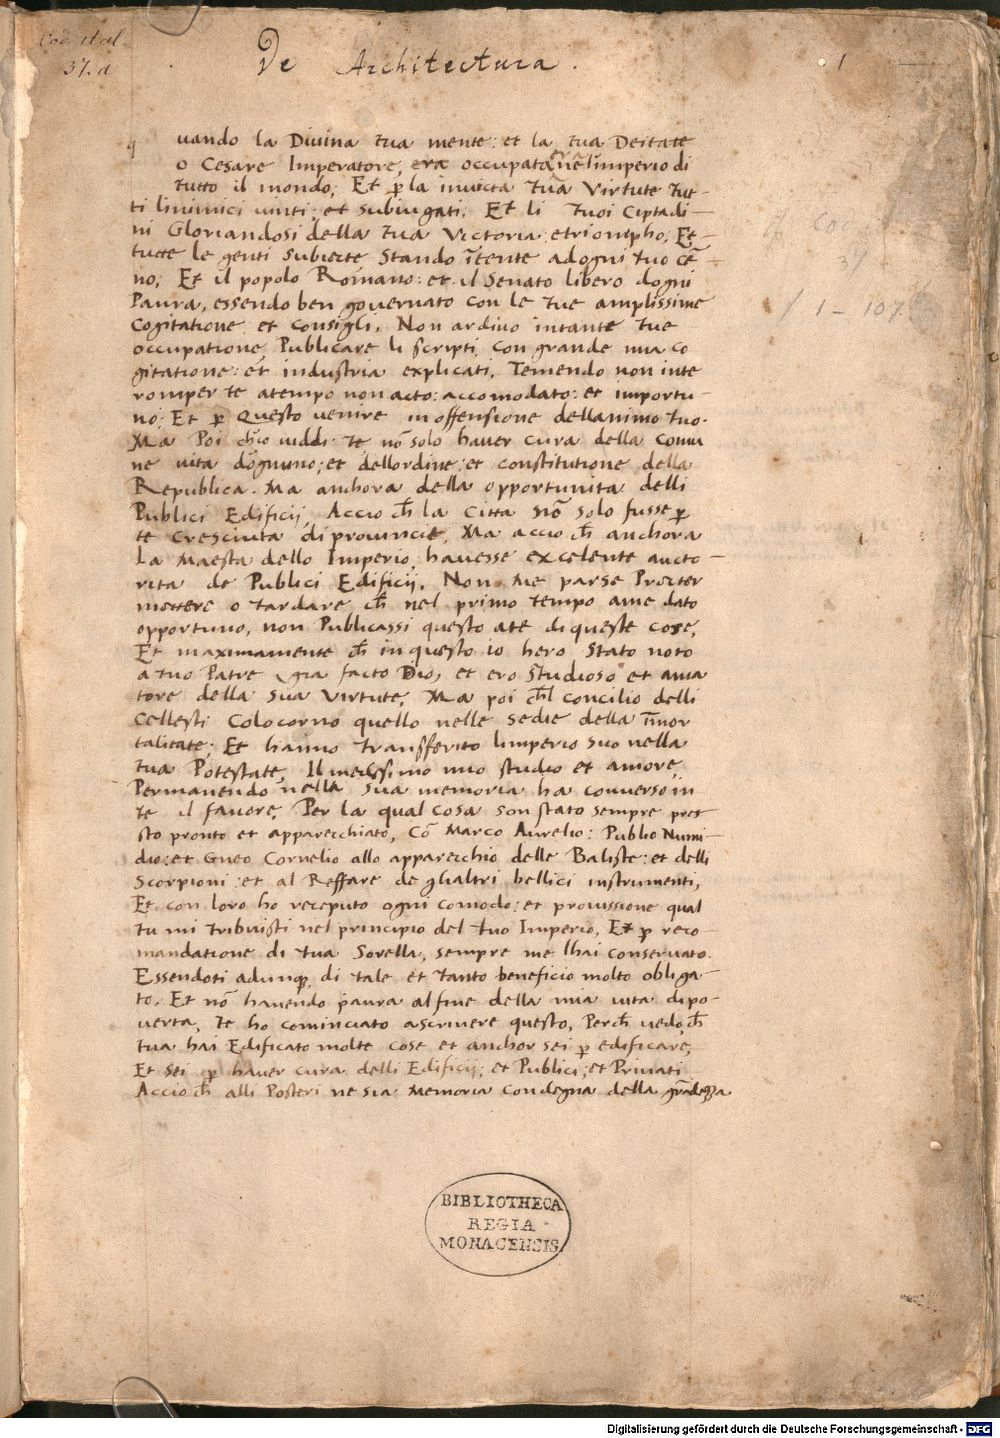 Cod. ital.
37. a
De Architectura.
1
q uando la Diuina tua mente: et la tua Deitate
o Cesare Imperatore, era occupata nel̃ limperio di
tutto il mondo; Et p̱ la inuicta Tua Virtute tut-
ti linimici uinti: et subiugati. Et li Tuoi Ciptadi-
ni Gloriandosi della tua Victoria etriompho; Et-
tutte le genti subiecte Stando ĩtente adogni tuo cẽ-
no; Et il popolo Romano: et il Senato libero dogni
Paura, essendo ben gouernato con le tue amplissime
Cogitatione et consigli. Non ardiuo intante tue
occupatione, Publicare li scripti, con grande mia co
gitatione: et industria explicati. Temendo non inte
romper te atempo non acto: accomodato: et importu-
no; Et p̱ Questo uenire in offensione dellanimo tuo.
Ma Poi ch̃io uiddi te nõ solo hauer cura della Comu
ne uita dognuno; et dellordine; et constitutione della
Republica. Ma anchora della opportunita delli
Publici Edificij, Accio ch̃ la Citta nõ solo fusse p̱
te Cresciuta di prouincie, Ma accio ch̃ anchora
La Maesta dello Imperio, hauesse excelente aucto-
rita de Publici Edificij. Non me parse Preter
mettere o tardare, ch̃ nel primo tempo ame dato
opportuno, non Publicassi questo ate di queste cose,
Et maximamente ch̃ in questo io hero Stato noto
a tuo Patre gia facto Dio, et ero studioso et ama
tore della sua Virtute, Ma poi ch̃l concilio delli
Cellesti Colocorno quello nelle sedie della ĩmor
talitate; Et hanno transferito limperio suo nella
tua Potestate, Il medesimo mio studio et amore
Permanendo nella sua memoria ha conuerso in
te il fauore, Per la qual cosa son stato sempre pre-
sto pronto et apparecchiato, Cõ Marco Aurelio: Publio Numi-
dio: et Gneo Cornelio allo apparecchio delle Baliste: et delli
Scorpioni: et al Reffare de ghaltri bellici instrumenti,
Et con loro ho receputo ogni comodo: et prouissione qual
tu mi tribuisti nel principio del tuo Imperio, Et p̱ reco-
mandatione di tua Sorella, sempre me lhai conseruato.
Essendoti adunq; di tale et tanto beneficio molto obliga-
to. Et nõ hauendo paura al fine della mia uita di po-
uerta, te ho cominciato a scriuere questo, Perch̃ uedo, ch̃
tua hai Edificato molte cose et anchor sei p̱ edificare,
Et sei p̱ hauer cura delli Edificij; et Publici; et Priuati
Accio ch̃ alli Posteri ne sia Memoria condegna della grãdezza
37
1 - 107.
BIBLIOTHECA
REGIA
MONACENSIS.
Digitalisierung gefördert durch die Deutsche Forschungsgemeinschaft - DFG